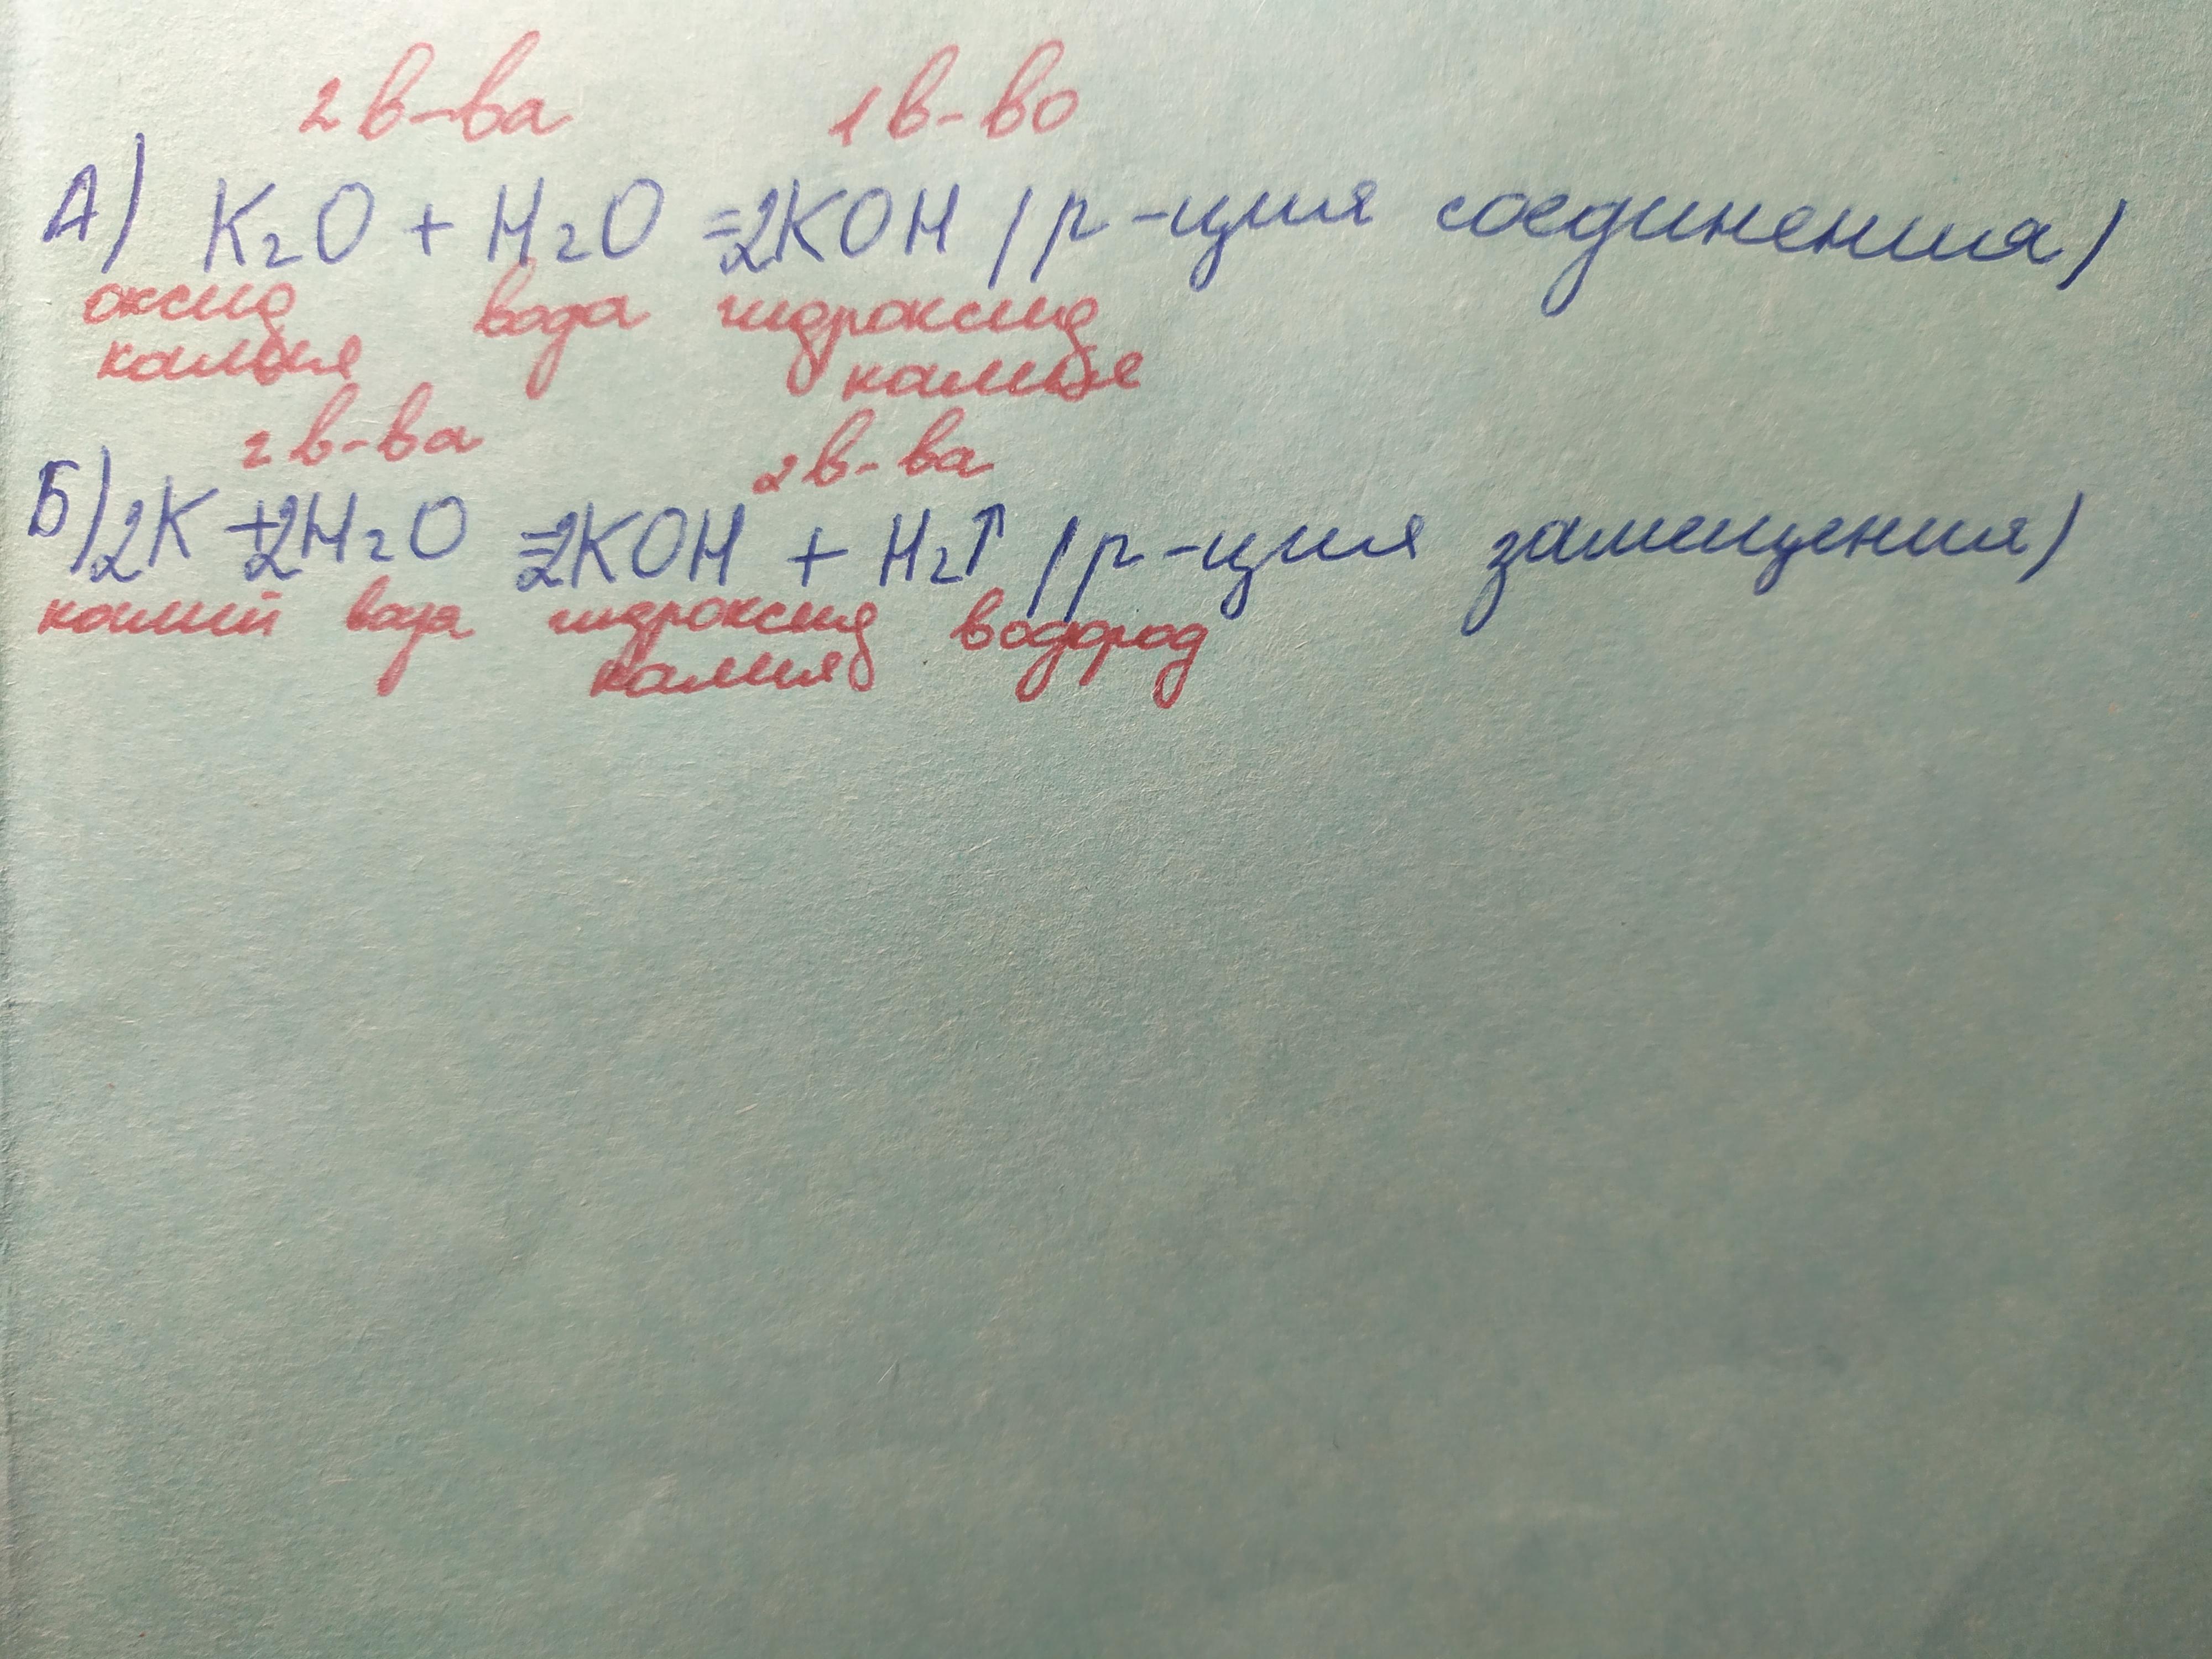 2 в-ва 1 в-во
А) K₂O + H₂O =2KOH (р-ция соединения)
оксид вода гидроксид
калия калия
2 в-ва 2 в-ва
Б) 2K +2H₂O =2KOH + H₂↑ (р-ция замещения)
калий вода гидроксид водород
калия